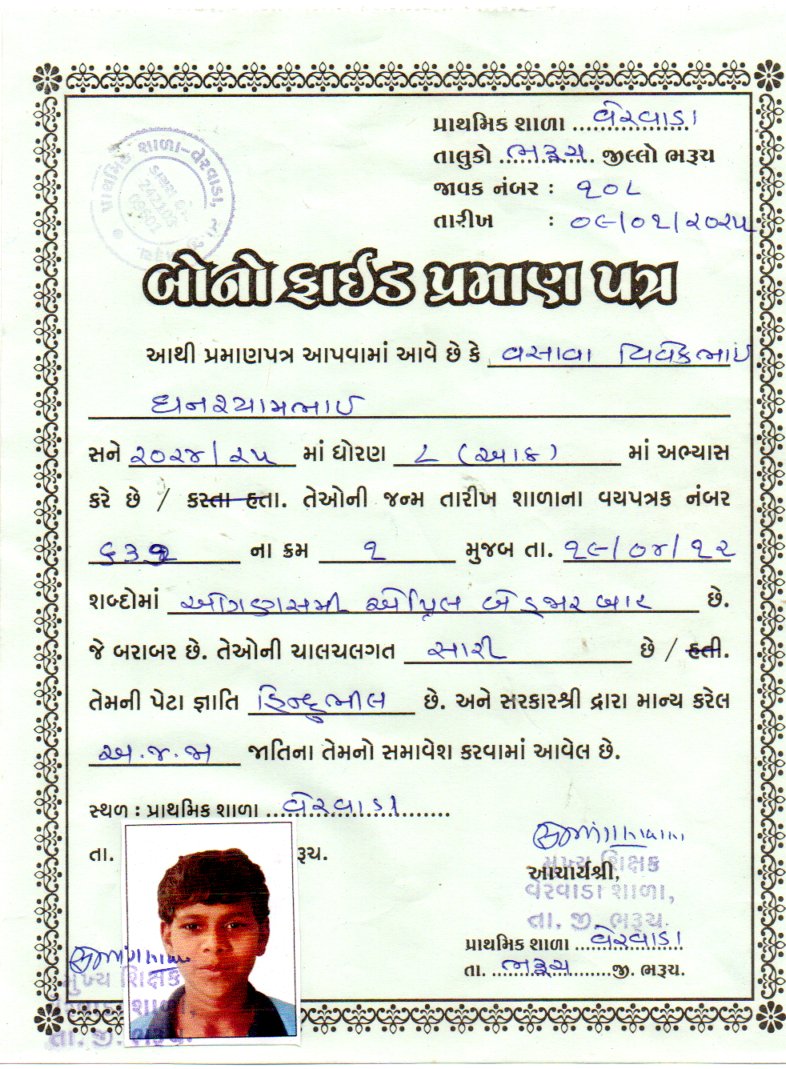 પ્રાથમિક શાળા ..વેરવાડા..
તાલુકો ..ભરૂચ.. જીલ્લો ભરૂચ
જાવક નંબર : ૧૦૮
તારીખ : ૦૯/૦૧/૨૦૨૫
પ્રાથમિક શાળા-વેરવાડા,
બોનો ફાઈડ પ્રમાણ પત્ર
આથી પ્રમાણપત્ર આપવામાં આવે છે કે વસાવા વિવેકભાઈ
ઘનશ્યામભાઈ
સને ૨૦૨૪/૨૫ માં ધોરણ ૮ (આઠ) માં અભ્યાસ
કરે છે / કરતા હતા. તેઓની જન્મ તારીખ શાળાના વયપત્રક નંબર
ના ક્રમ ૧ મુજબ તા. ૧૯/૦૪/૧૨
શબ્દોમાં ઓગણસમી એપ્રિલ બે હજાર બાર છે.
જે બરાબર છે. તેઓની ચાલચલગત સારી છે / હતી.
તેમની પેટા જ્ઞાતિ હિન્દુભીલ છે. અને સરકારશ્રી દ્વારા માન્ય કરેલ
અ.જ.જા જાતિના તેમનો સમાવેશ કરવામાં આવેલ છે.
સ્થળ : પ્રાથમિક શાળા ..વેરવાડા..
તા. રૂચ.
મુખ્ય શિક્ષક
આચાર્યશ્રી,
વેરવાડા શાળા,
તા. જી. ભરૂચ.
પ્રાથમિક શાળા ..વેરવાડા
તા. ..ભરૂચ.......જી. ભરૂચ.
મુખ્ય શિક્ષક
શાળા,
તા. જી. ભરૂચ.